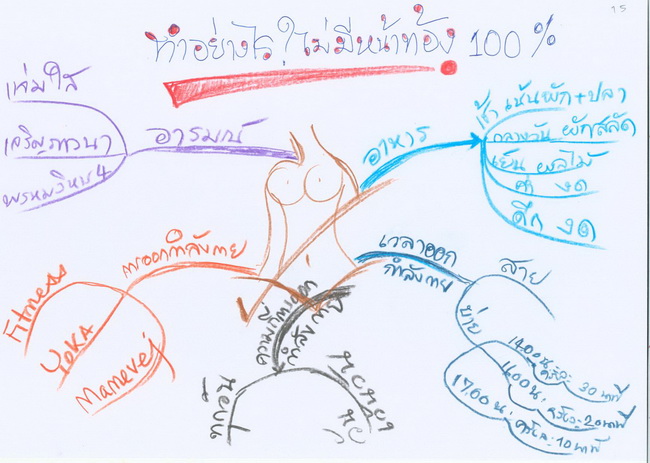 15
ทำอย่างไร? ไม่มีหน้าท้อง 100%
อารมณ์
แจ่มใส
เจริญภาวนา
พรหมวิหาร 4
อาหาร
เช้า เน้นผัก+ปลา
กลางวัน ผักสลัด
เย็น ผลไม้
ค่ำ งด
ดึก งด
เวลาออก
กำลังกาย
สาย
บ่าย
14.00 น. 30 นาที
16.00 น. 20 นาที
17.00 น. 10 นาที
การออกกำลังกาย
Fitness
YOKA
Mamevej
ความถี่
กำลังกาย